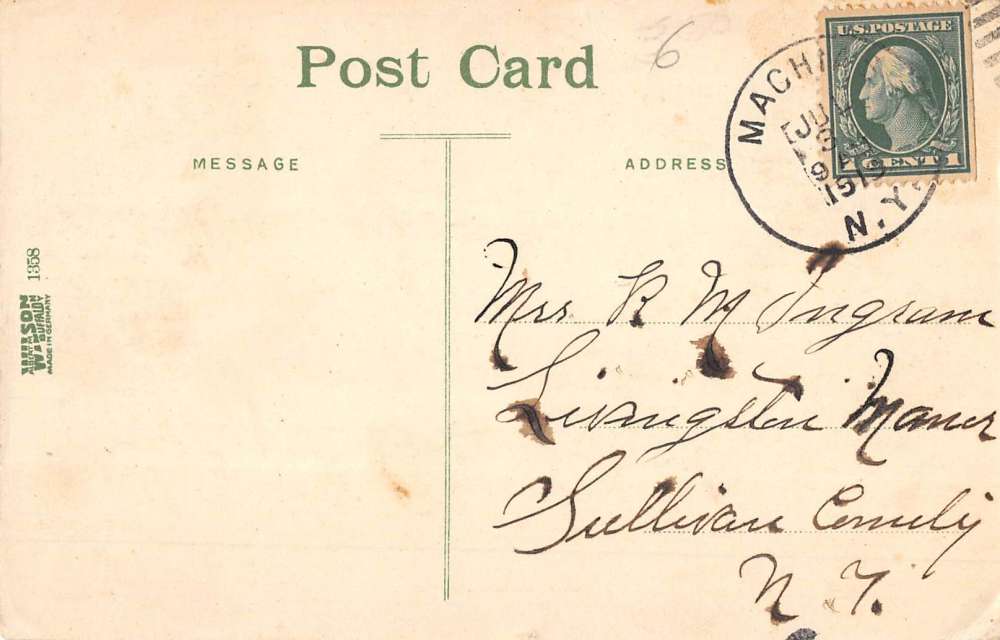 Post Card
6
U.S. POSTAGE
1 CENT 1
MACHI
JUL
9 A
1913
N.Y.
MESSAGE
ADDRESS
1358
WILSON
BUFFALO
MADE IN GERMANY
Mrs R M Ingram
Livingston Manor
Sullivan County
N. Y.